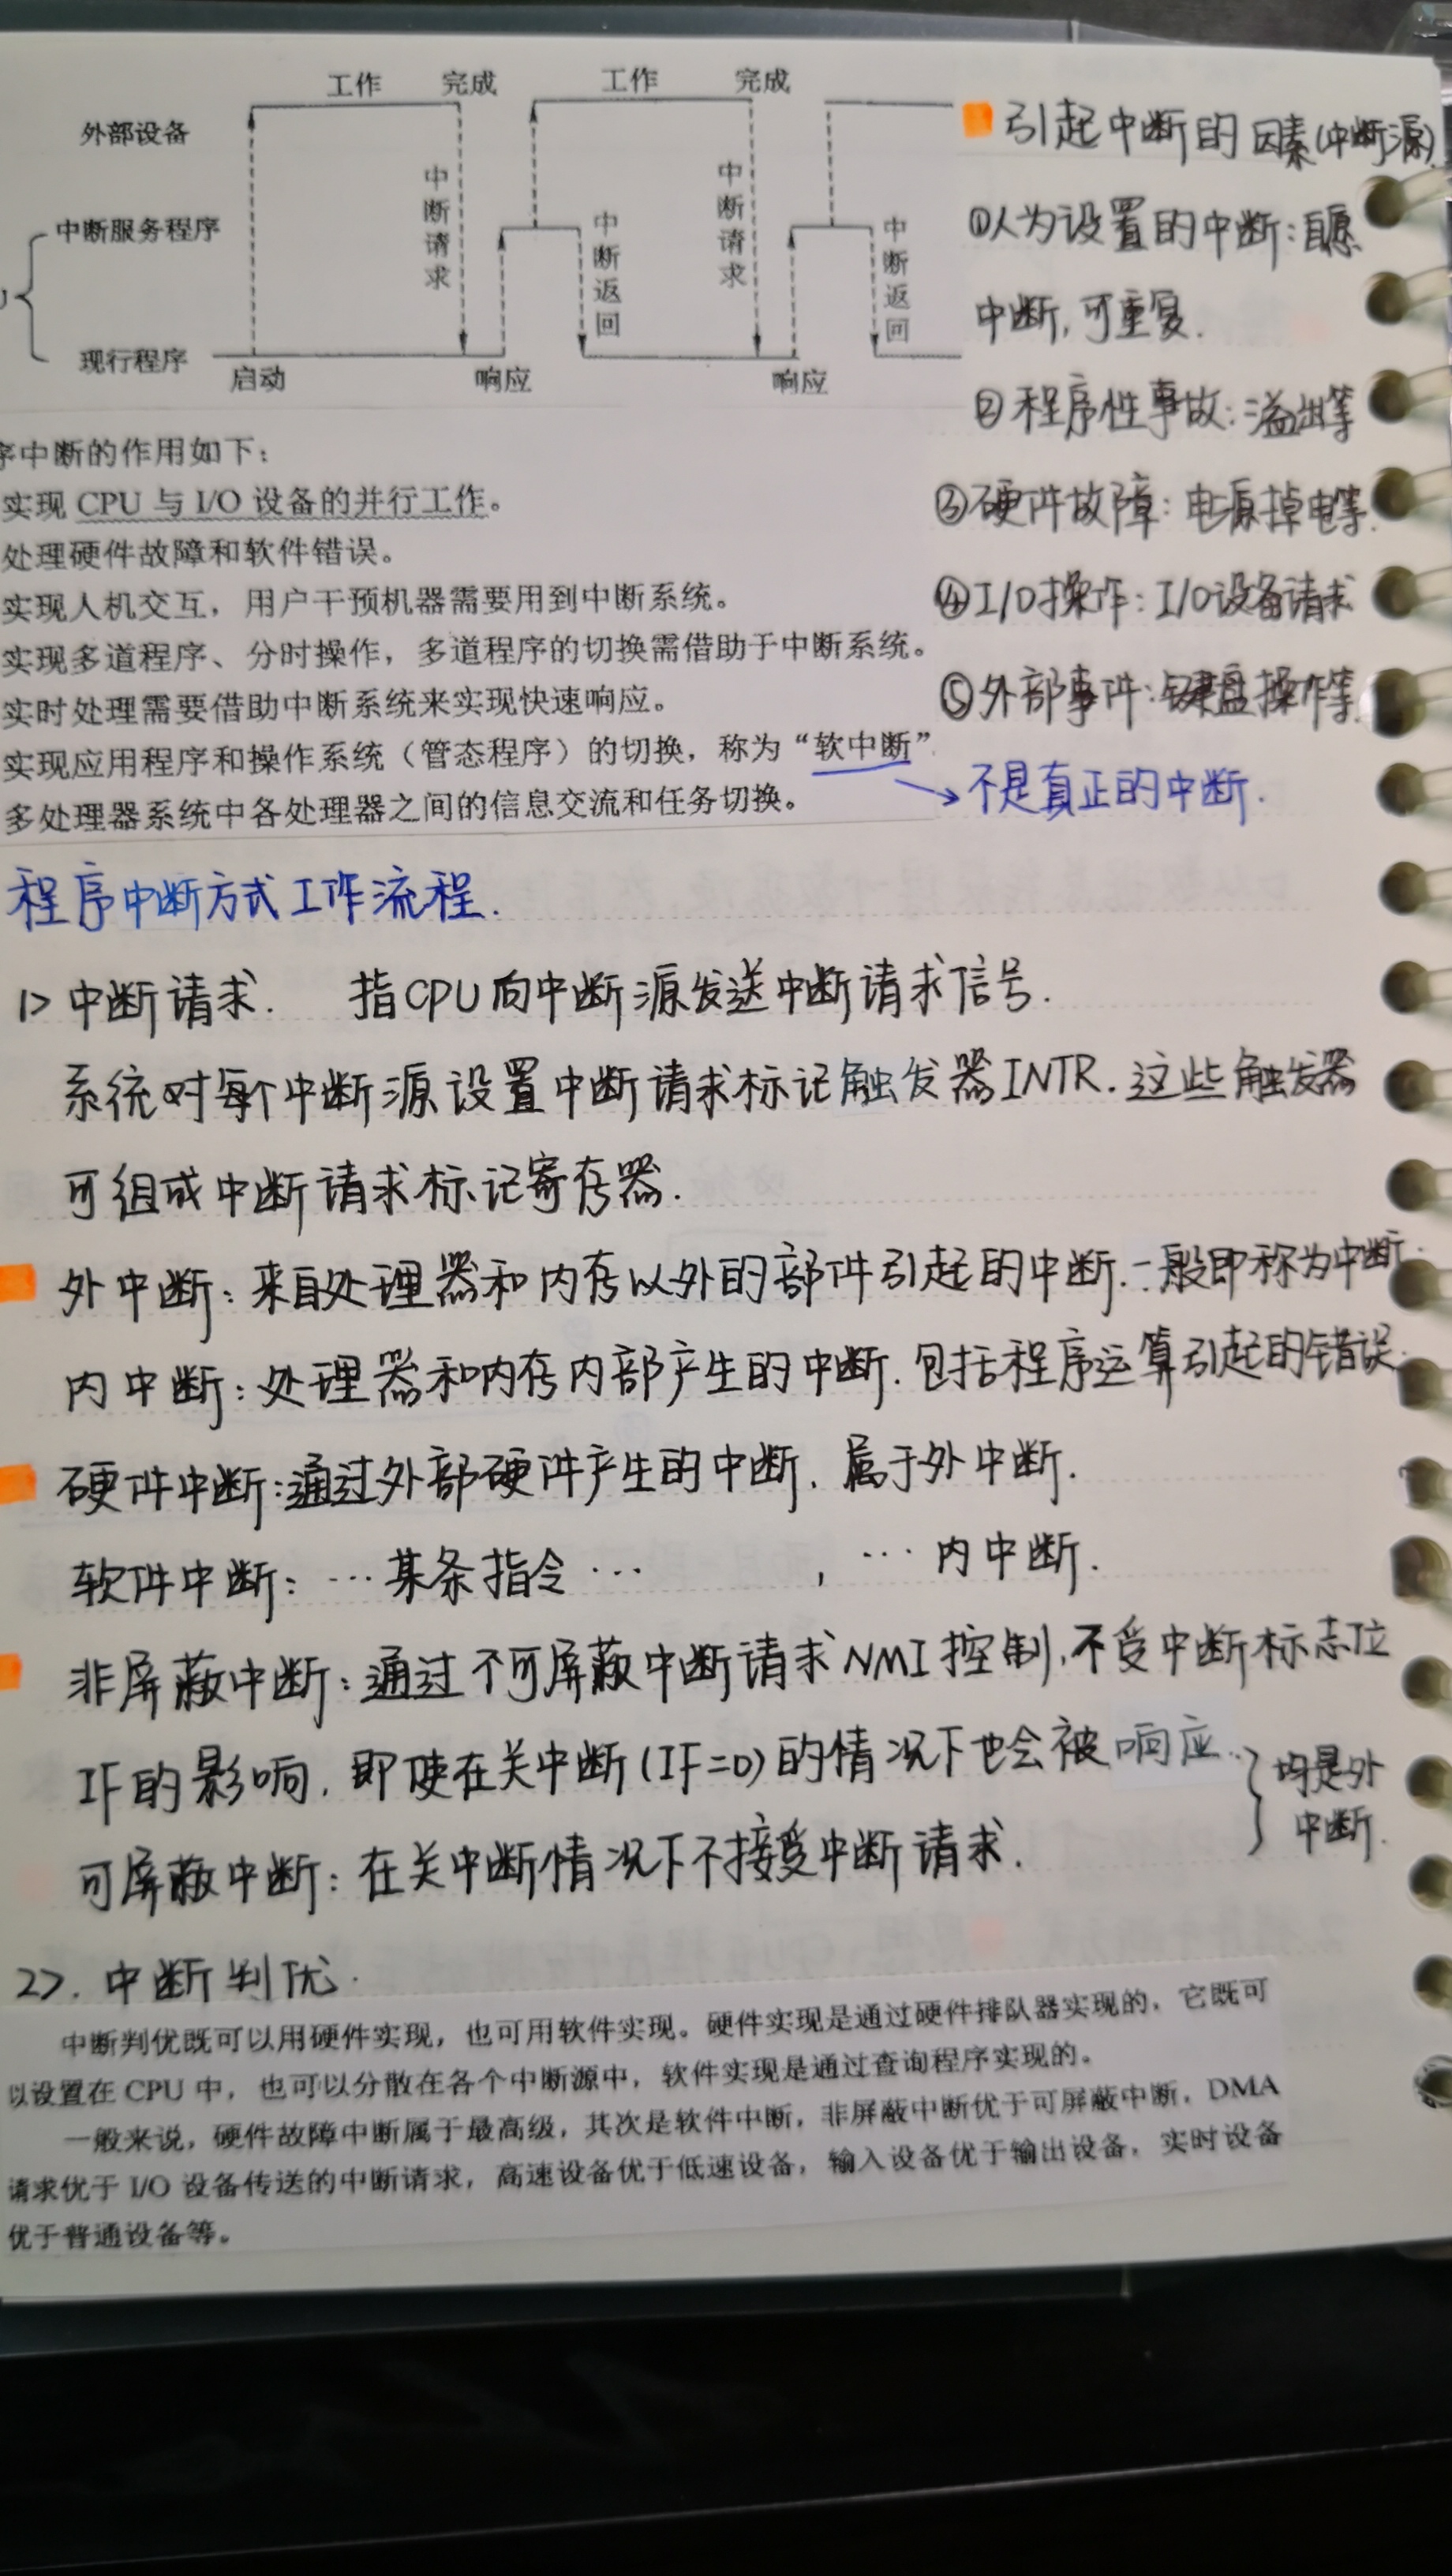 工作 完成 工作 完成
外部设备
中断请求
中断请求
中断服务程序
中断返回
中断返回
现行程序
启动 响应 响应
引起中断的因素(中断源)
①人为设置的中断:自愿
中断,可重复.
②程序性事故:溢出等
③硬件故障:电源掉电等.
④I/O操作:I/O设备请求
⑤外部事件:键盘操作等.
序中断的作用如下:
实现 CPU 与 I/O 设备的并行工作。
处理硬件故障和软件错误。
实现人机交互,用户干预机器需要用到中断系统。
实现多道程序、分时操作,多道程序的切换需借助于中断系统。
实时处理需要借助中断系统来实现快速响应。
实现应用程序和操作系统(管态程序)的切换,称为“软中断”
多处理器系统中各处理器之间的信息交流和任务切换。
不是真正的中断.
程序中断方式工作流程.
1> 中断请求. 指CPU向中断源发送中断请求信号.
系统对每个中断源设置中断请求标记触发器INTR.这些触发器
可组成中断请求标记寄存器.
外中断:来自处理器和内存以外的部件引起的中断.一般即称为中断.
内中断:处理器和内存内部产生的中断.包括程序运算引起的错误.
硬件中断:通过外部硬件产生的中断,属于外中断.
软件中断:…某条指令… ,…内中断.
非屏蔽中断:通过不可屏蔽中断请求NMI控制,不受中断标志位
IF的影响,即使在关中断(IF=0)的情况下也会被响应.
可屏蔽中断:在关中断情况下不接受中断请求.
均是外
中断.
2>. 中断判优.
中断判优既可以用硬件实现,也可用软件实现。硬件实现是通过硬件排队器实现的,它既可
以设置在 CPU 中,也可以分散在各个中断源中,软件实现是通过查询程序实现的。
一般来说,硬件故障中断属于最高级,其次是软件中断,非屏蔽中断优于可屏蔽中断,DMA
请求优于 I/O 设备传送的中断请求,高速设备优于低速设备,输入设备优于输出设备,实时设备
优于普通设备等。